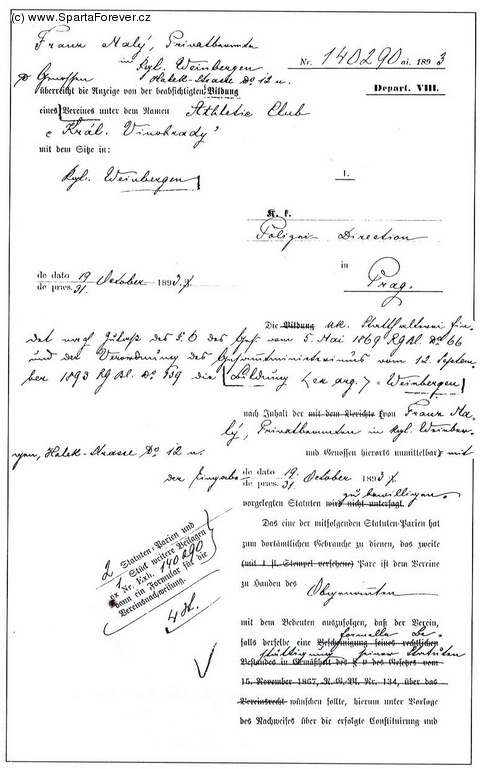 (c) www.SpartaForever.cz
Franz Malý, Privatbeamte
in Kgl. Weinbergen
Nr. 140290 ai. 1893
Genossen Halek-Strasse No 12 n.
überreicht die Anzeige von der beabsichtigten Bildung
Depart. VIII.
eines Vereines unter dem Namen Athletic Club
"Král. Vinohrady"
mit dem Sitze in:
Kgl. Weinbergen
1.
K. k.
Polizei - Direction
in
Prag.
de dato 19 October 1893
de præs. 21.
Die Bildung k.k. Statthalterei
det nach des § 6 des Ges. vom 5. Mai 1869 RGBl. No 66
und der Verordnung des Gesammtministeriums vom 12. Septem-
ber 1893 RGBl. No 139 die Bildung (ex arg.) Weinbergen
nach Inhalt der mit dem Berichte von Franz Ma-
lý, Privatbeamten in Kgl. Weinber-
gen, Halek-Strasse No 12 n. und Genossen hierorts unmittelbar mit
der Eingabe de dato 19. October 1893
de præs. 21.
zu bewilligen.
vorgelegten Statuten wird nicht untersagt.
Das eine der mitfolgenden Statuten-Parien hat
zum dortämtlichen Gebrauche zu dienen, das zweite
(mit 1 fl. Stempel versehene) Pare ist dem Verein
zu Handen des Obgenannten
2 Statuten-Parien und
1 Stück weitere Beilagen
ex Nr. Exh. 140290
dann ein Formular für die
Vereinsnachweisung.
4 St.
mit dem Bedeuten auszufolgen, daß der Verein,
formelle Be-
falls derselbe eine Bescheinigung seines rechtlichen
stättigung seiner Statuten
Bestandes in Gemäßheit des § 9 des Gesetzes vom
15. November 1867, R. G. Bl. Nr. 134, über das
Vereinsrecht wünschen sollte, hierum unter Vorlage
des Nachweises über die erfolgte Constituirung und